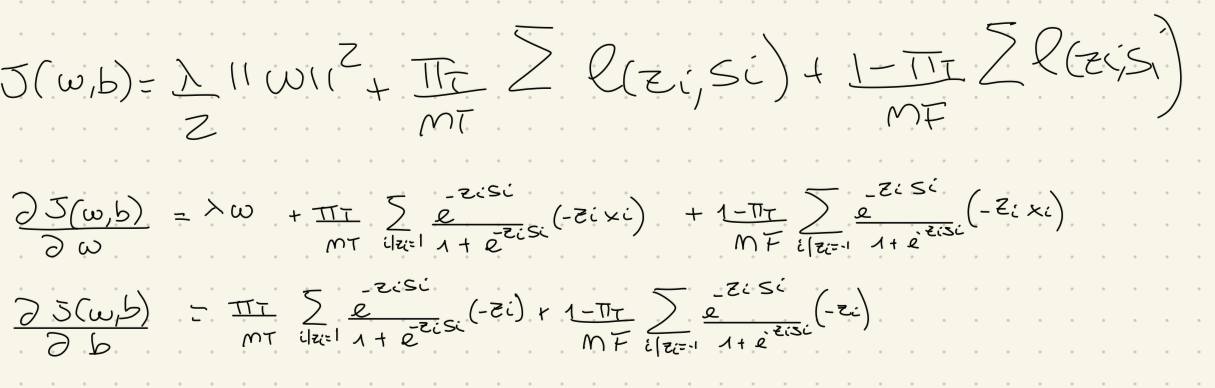 J(w,b) = λ/2 ||w||² + π_T/m_T ∑ ℓ(zi, si) + 1-π_T/m_F ∑ ℓ(zi, si)
∂J(w,b)/∂w = λw + π_T/m_T ∑_{i|zi=1} e^{-zisi}/(1+e^{-zisi}) (-zi xi) + 1-π_T/m_F ∑_{i|zi=-1} e^{-zisi}/(1+e^{-zisi}) (-zi xi)
∂J(w,b)/∂b = π_T/m_T ∑_{i|zi=1} e^{-zisi}/(1+e^{-zisi}) (-zi) + 1-π_T/m_F ∑_{i|zi=-1} e^{-zisi}/(1+e^{-zisi}) (-zi)